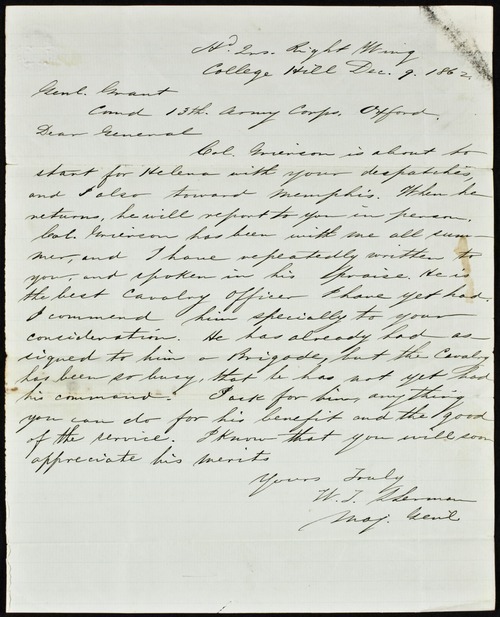 Hd. Qrs. Right Wing
College Hill Dec. 9. 1862.
Genl. Grant
Comd 13th. Army Corps, Oxford.
Dear General
Col. Grierson is about to
start for Helena with your despatches,
and I also toward Memphis. When he
returns, he will report to you in person.
Col. Grierson has been with me all sum-
mer, and I have repeatedly written to
you, and spoken in his praise. He is
the best Cavalry officer I have yet had.
I commend him specially to your
consideration. He has already had as-
signed to him a Brigade, but the Cavalry
has been so busy, that he has not yet had
his command. I ask for him, anything
you can do for his benefit and the good
of the service. I know that you will soon
appreciate his merits
Yours Truly
W. T. Sherman
Maj. Genl